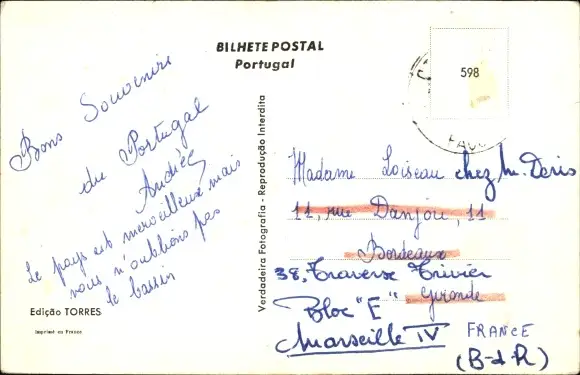 BILHETE POSTAL
Portugal
598
Bons Souvenirs
du Portugal
Andrée
Le pays est merveilleux mais
nous n'oublions pas
le bassin
Edição TORRES
Imprimé en France
Verdadeira Fotografia - Reprodução Interdita
Madame Loiseau chez M. Denis
11, rue Danjou, 11
Bordeaux
38, Traverse Trivier
Bloc "E" Gironde
Marseille IV FRANCE
(B-d-R)